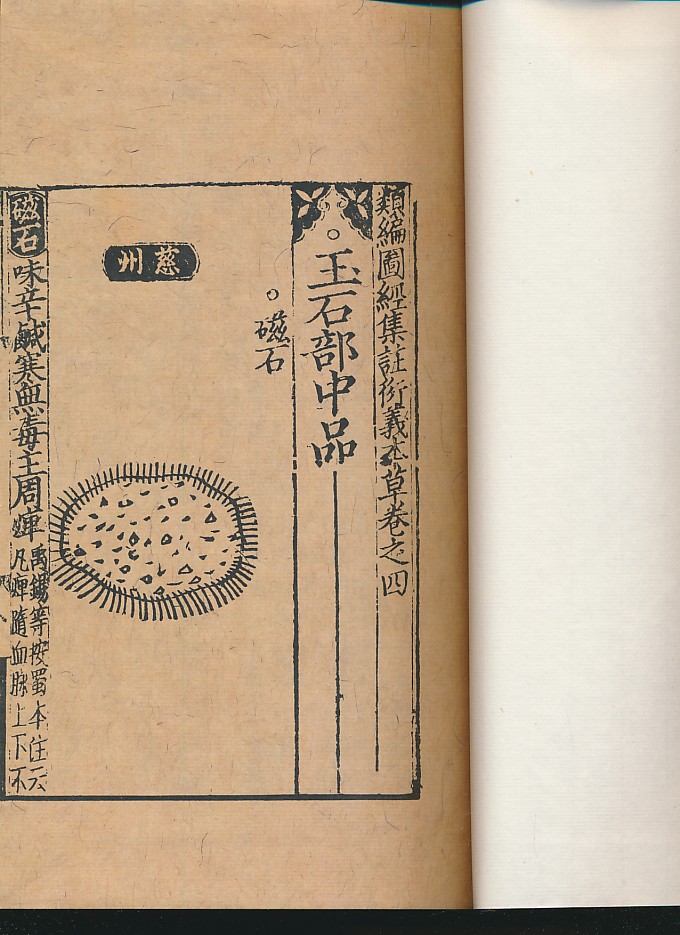 類編圖經集註衍義本草卷之四
玉石部中品
磁石
慈州
磁石味辛鹹寒無毒主周痺禹錫等按蜀本注云
凡痺隨血脉上下不